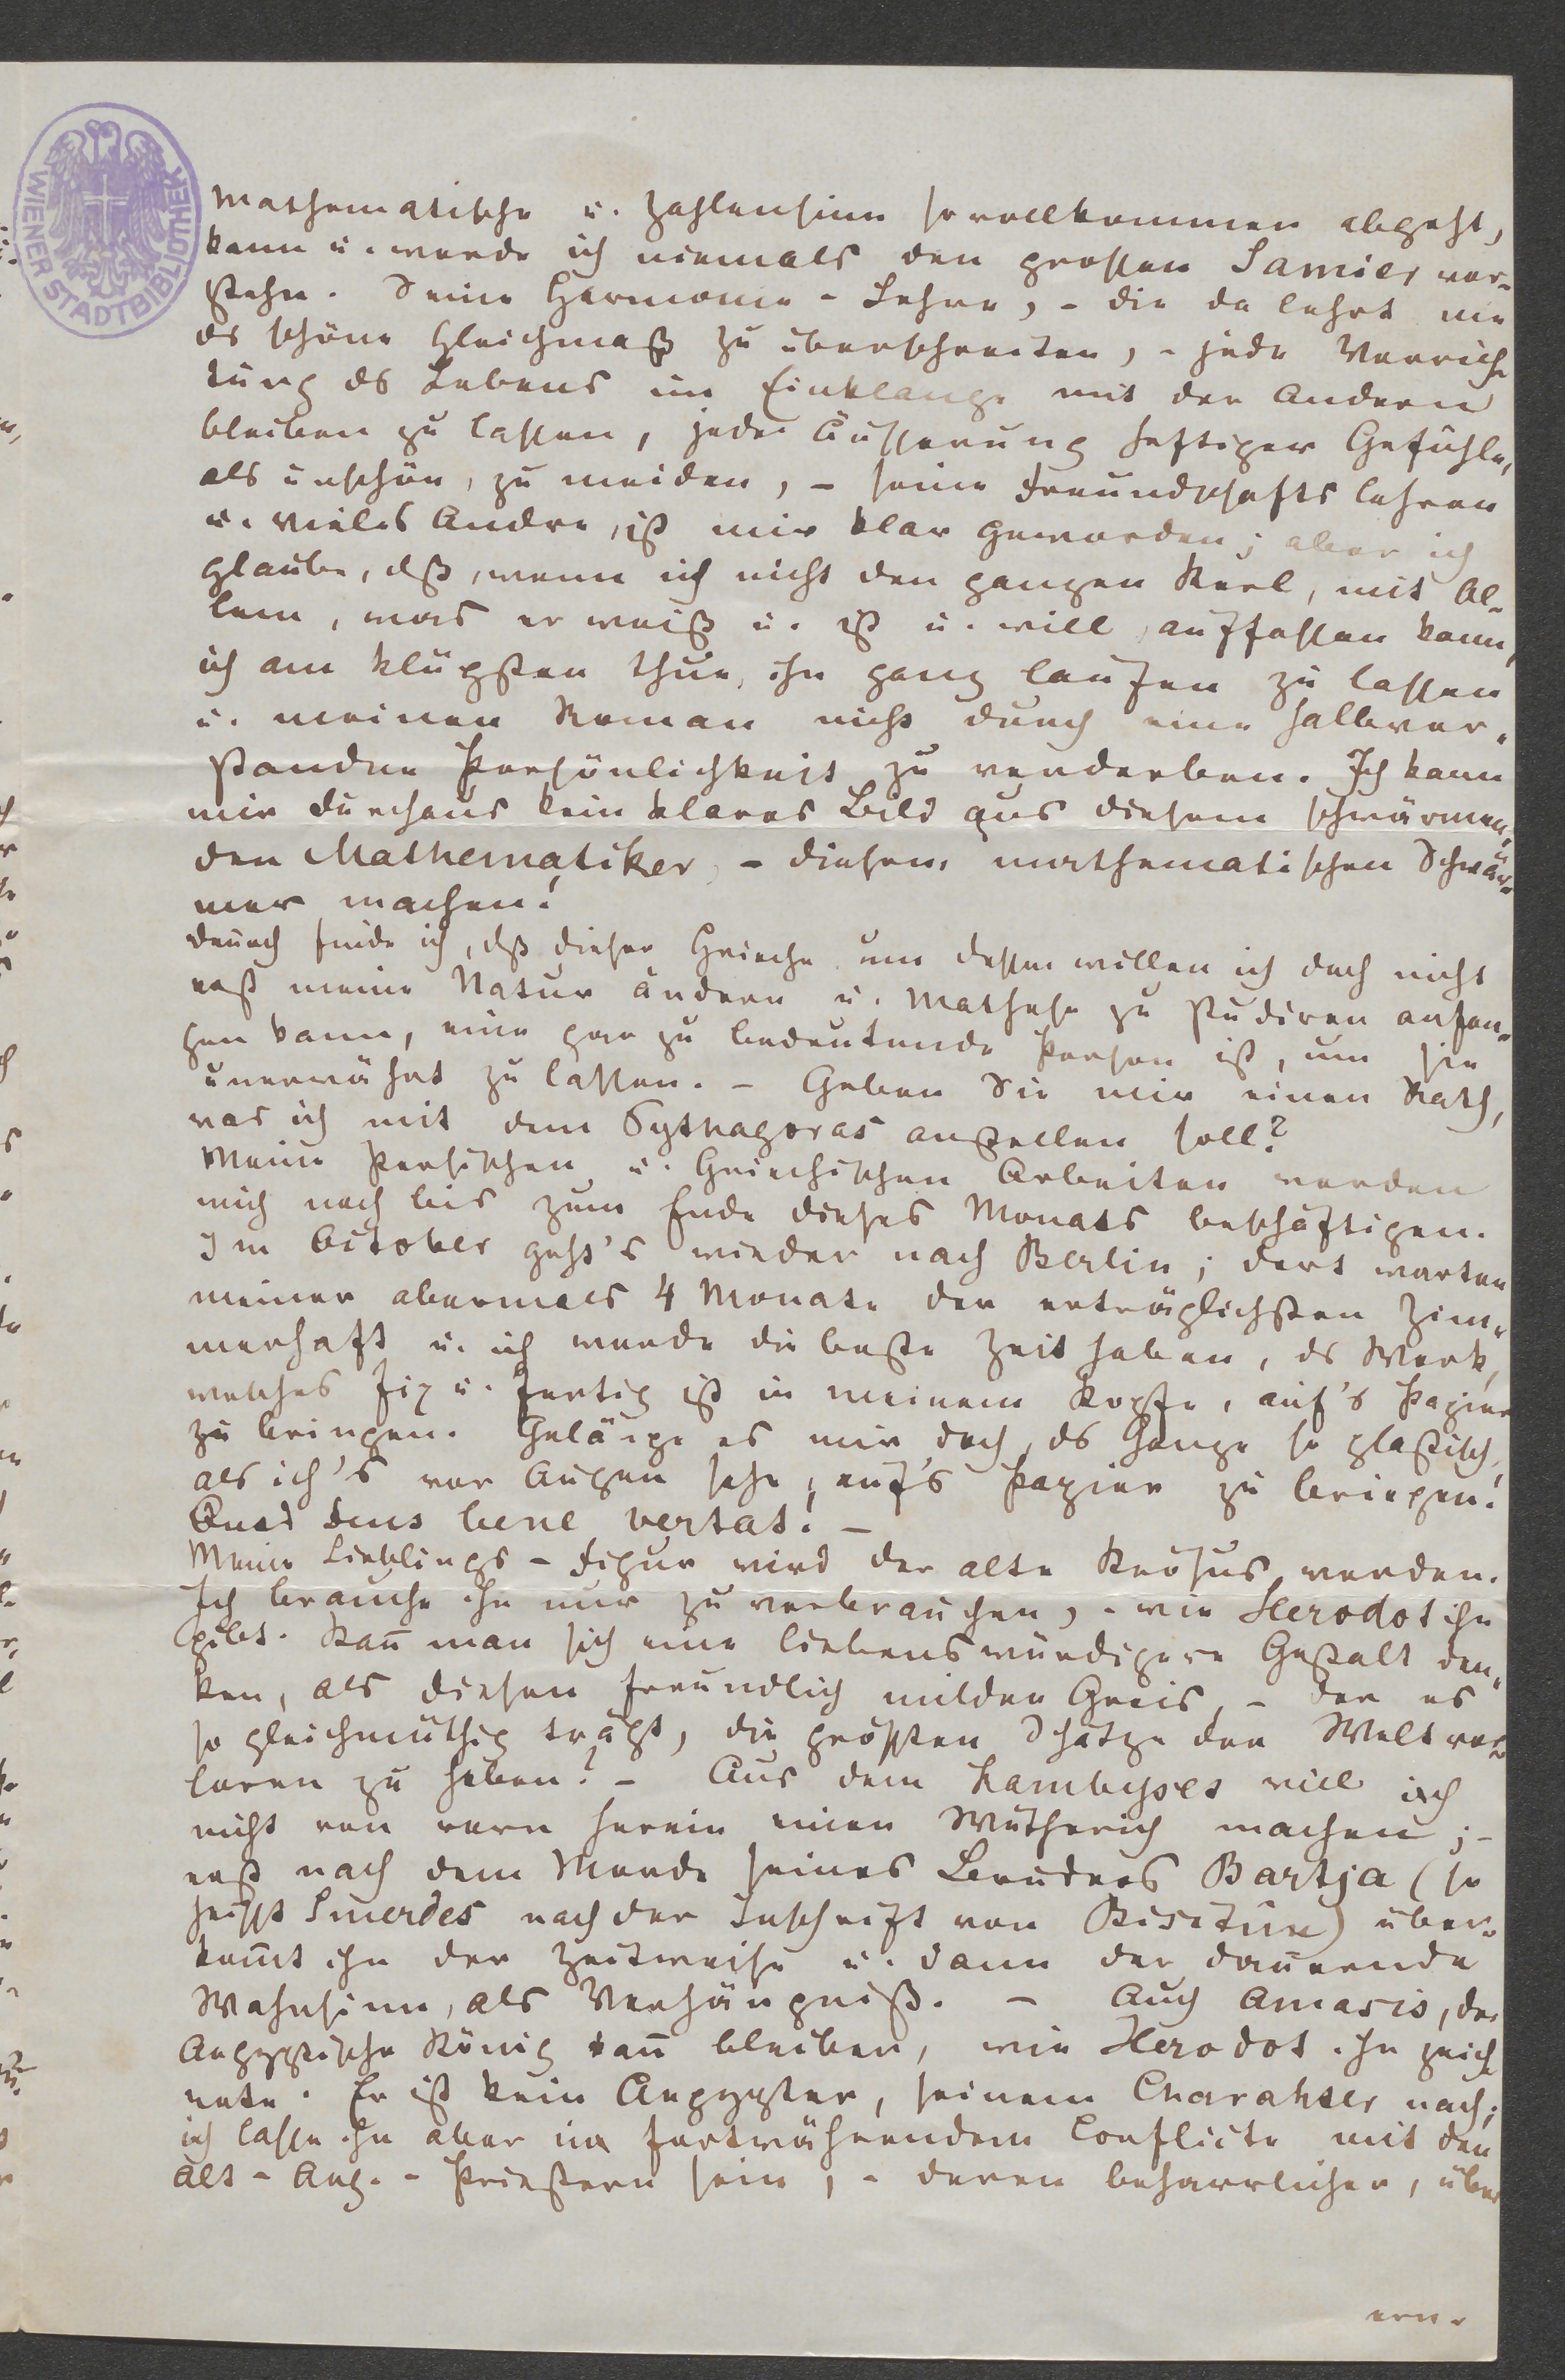 WIENER STADTBIBLIOTHEK
Mathematische u. Zahlensinn so vollkommen abgeht,
kann u. werde ich niemals den grossen Samier ver-
stehn. Seine Harmonie-Lehre, - die da lehrt nie
ds schöne Gleichmaß zu überschreiten, - jede Verrich-
tung ds Lebens im Einklange mit der Andern
bleiben zu lassen, jede Äusserung heftiger Gefühle,
als unschön, zu meiden, - seine Freundschaftslehren
u. vieles Andre, ist mir klar geworden; aber ich
glaube, dß, wenn ich nicht den ganzen Kerl, mit Al-
lem, was er weiß u. ist u. will, auffassen kann,
ich am klügsten thue, ihn ganz laufen zu lassen
u. meinen Roman nicht durch eine halbver-
standne Persönlichkeit zu verderben. Ich kann
mir durchaus kein klares Bild aus diesem schwärmen-
den Mathematiker, - diesem mathematischen Schwär-
mer machen!
Dennoch finde ich, dß dieser Grieche um dessen willen ich doch nicht
erst meine Natur ändern u. Mathese zu studiren anfan-
gen kann, eine gar zu bedeutende Person ist, um sie
unerwähnt zu lassen. - Geben Sie mir einen Rath,
was ich mit dem Pythagoras anstellen soll?
Meine Persischen u. Griechischen Arbeiten werden
mich noch bis zum Ende dieses Monats beschäftigen.
Im October geht's wieder nach Berlin; dort warten
meiner abermals 4 Monate der erträglichsten Zim-
merhaft u. ich werde die beste Zeit haben, ds Werk,
welches fix u. fertig ist in meinem Kopfe, auf's Papier
zu bringen. Gelänge es mir doch, ds Ganze so plastisch,
als ich's vor Augen sehe, auf's Papier zu bringen!
Quod deus bene vertat! -
Meine Lieblings-Figur wird der alte Krösus werden.
Ich brauche ihn nur zu verbrauchen, - wie Herodot ihn
gibt. Kan̄ man sich eine liebenswürdigere Gestalt den-
ken, als diesen freundlich milden Greis, - der es
so gleichmüthig trägt, die grössten Schätze der Welt ver-
loren zu haben? - Aus dem Kambyses will ich
nicht von vorn herein einen Wütherich machen; -
erst nach dem Morde seines Bruders Bartja (so
heisst Smerdes nach der Inschrift von Bisitun) über-
kom̄t ihn der zeitweise u. dann der dauernde
Wahnsinn, als Verhängniß. - Auch Amasis, der
Aegyptische König kan̄ bleiben, wie Herodot ihn zeich
nete. Er ist kein Aegypter, seinem Charakter nach;
ich lasse ihn aber in fortwährendem Conflicte mit den
Alt-Aeg.-Priestern sein, - deren beharrlicher, über
ern-